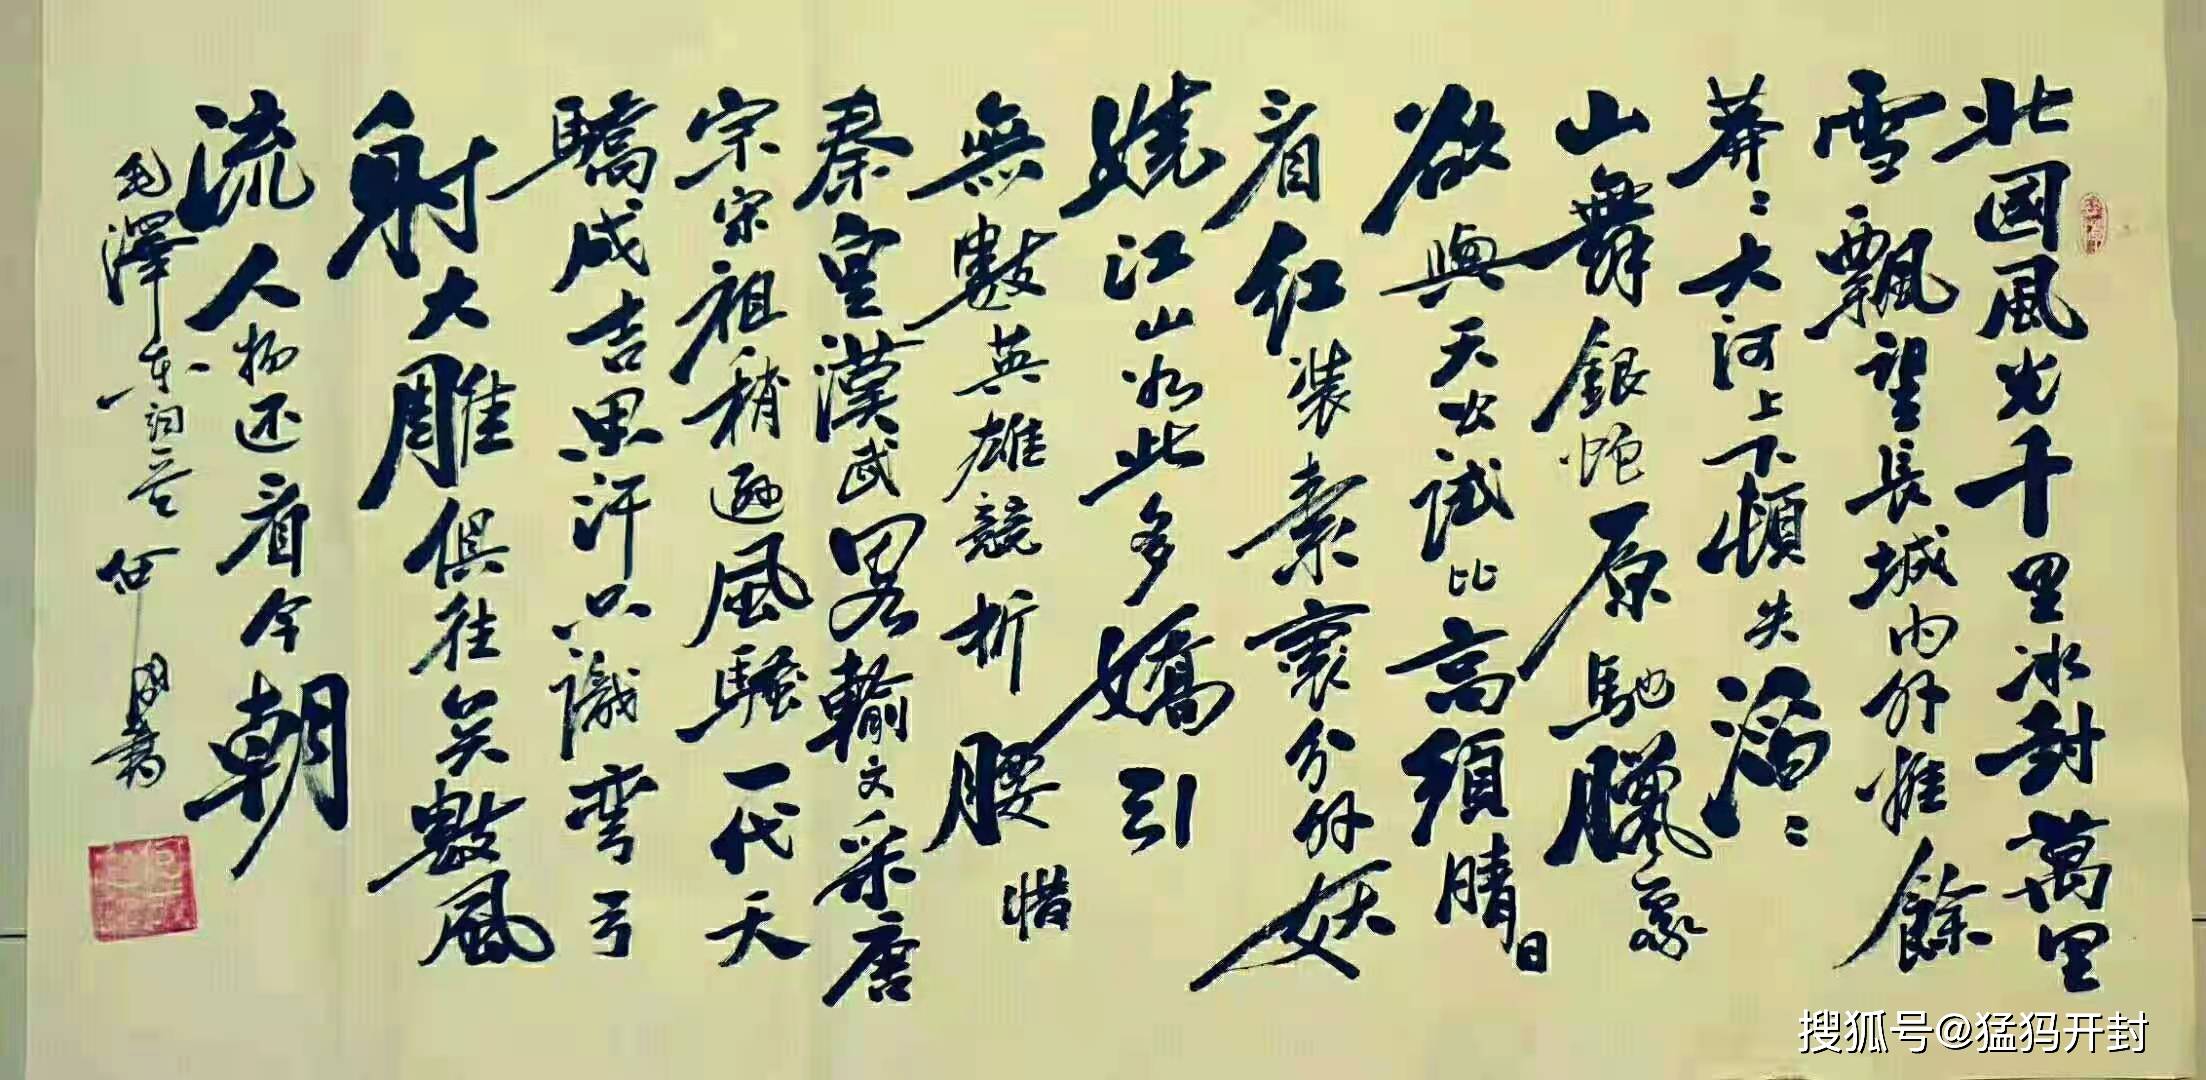 北國風光千里冰封萬里
雪飄望長城内外惟餘
莽〻大河上下頓失滔〻
山舞銀蛇原馳臘象
欲與天公試比高須晴日
看红装素裹分外妖
嬈江山如此多嬌引
無數英雄競折腰惜
秦皇漢武畧輸文采唐
宗宋祖稍遜風騷一代天
驕成吉思汗只識彎弓
射大雕俱往矣數風
流人物还看今朝
毛澤东詞 書
搜狐号@猛犸开封